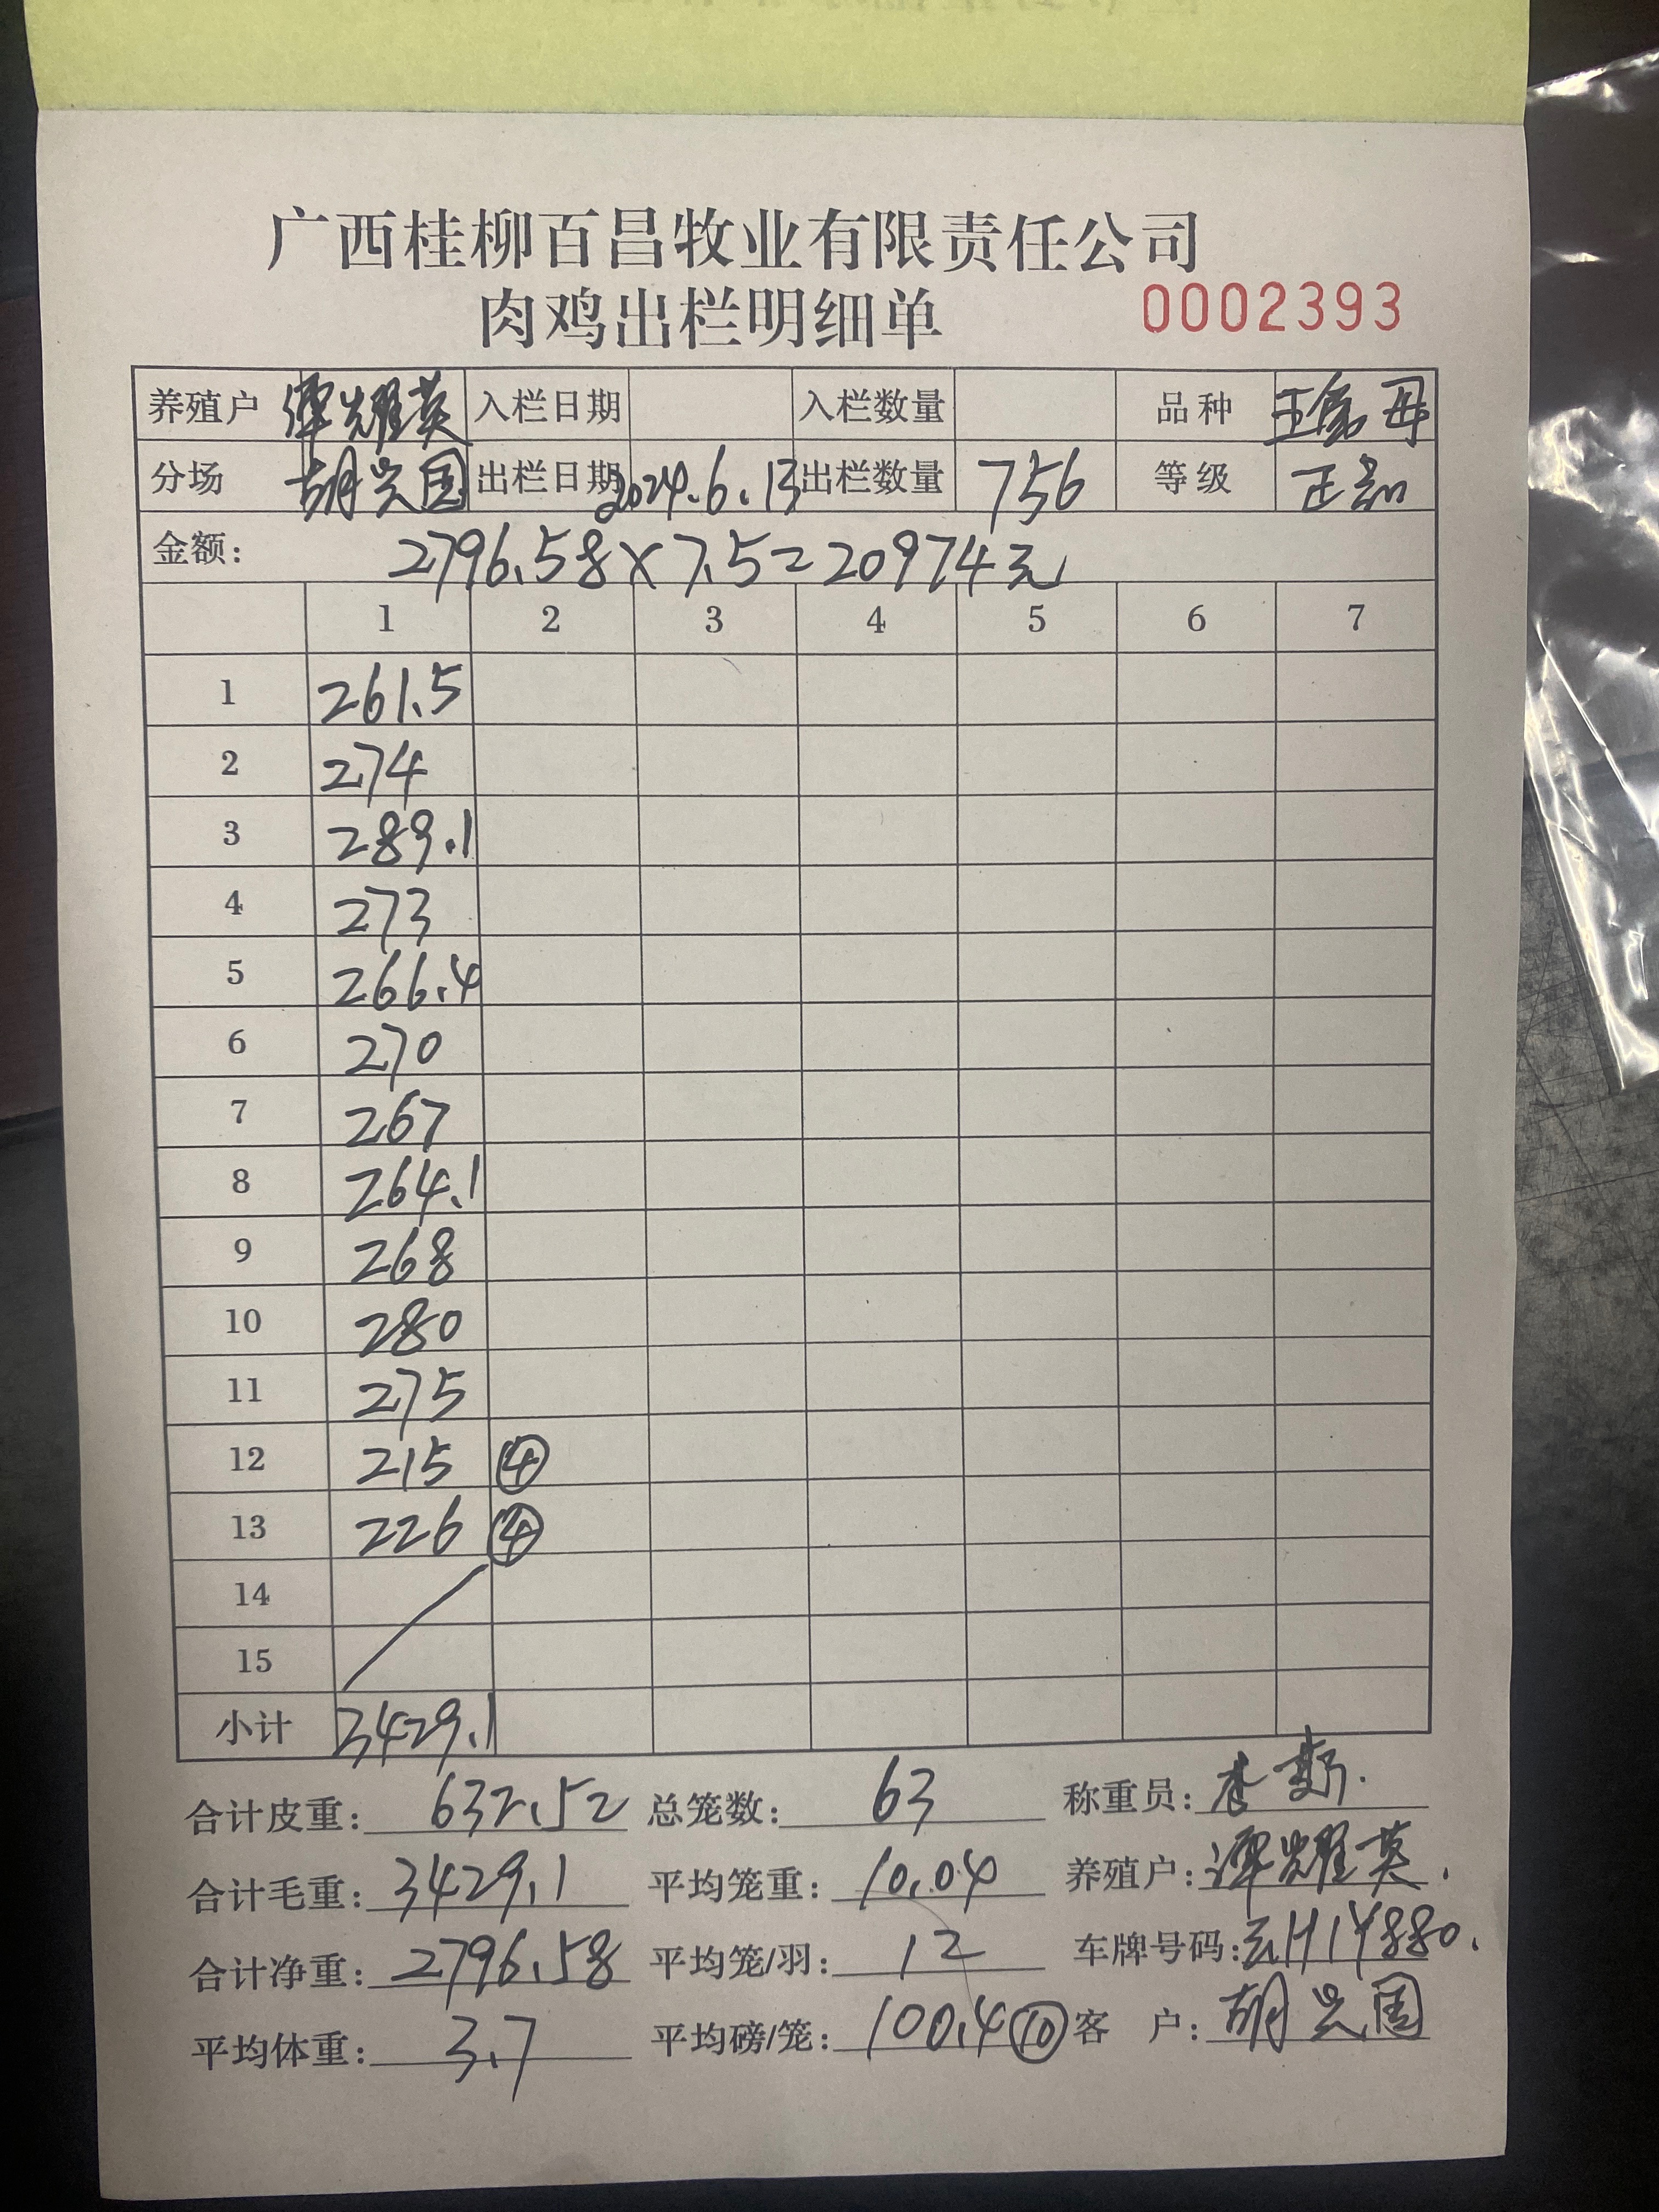 广西桂柳百昌牧业有限责任公司
肉鸡出栏明细单 0002393
养殖户 谭耀英 入栏日期 入栏数量 品种
分场 胡兴国 出栏日期 2024.6.13 出栏数量 756 等级
金额: 2796.58×7.5=20974元
1 2 3 4 5 6 7
1 261.5
2 274
3 289.1
4 273
5 266.4
6 270
7 267
8 264.1
9 268
10 280
11 275
12 215 ④
13 226 ④
14
15
小计 3429.1
合计皮重: 632.52 总笼数: 63 称重员: 李
合计毛重: 3429.1 平均笼重: 10.04 养殖户: 谭耀英.
合计净重: 2796.58 平均笼/羽: 12 车牌号码: 云H14880.
平均体重: 3.7 平均磅/笼: 100.4⑩ 客 户: 胡兴国